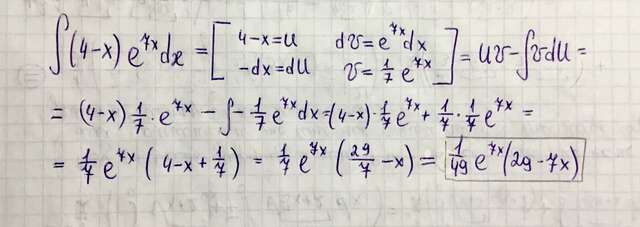 ∫(4-x) e^{7x}dx = [ 4-x=u dv=e^{7x}dx -dx=du v=1/7 e^{7x} ] = uv-∫vdu =
= (4-x) 1/7 · e^{7x} - ∫-1/7 e^{7x}dx=(4-x)·1/7 e^{7x}+ 1/7 · 1/7 e^{7x} =
= 1/7 e^{7x} ( 4-x + 1/7 ) = 1/7 e^{7x} ( 29/7 -x) = 1/49 e^{7x}(29-7x)